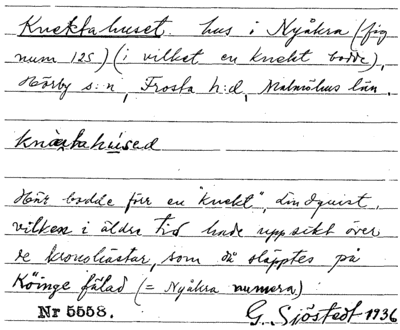 Knektahuset. hus i Nyåkra (fig
num 125) (i vilket en knekt bodde),
Hörby s:n, Frosta h:d, Malmöhus län.
knæktahúsed
Här bodde förr en "knekt", Lindquist,
vilken i äldre tid hade uppsikt över
de kronohästar, som då släpptes på
Köinge fälad (= Nyåkra numera)
Nr 5558. G. Sjöstedt 1936